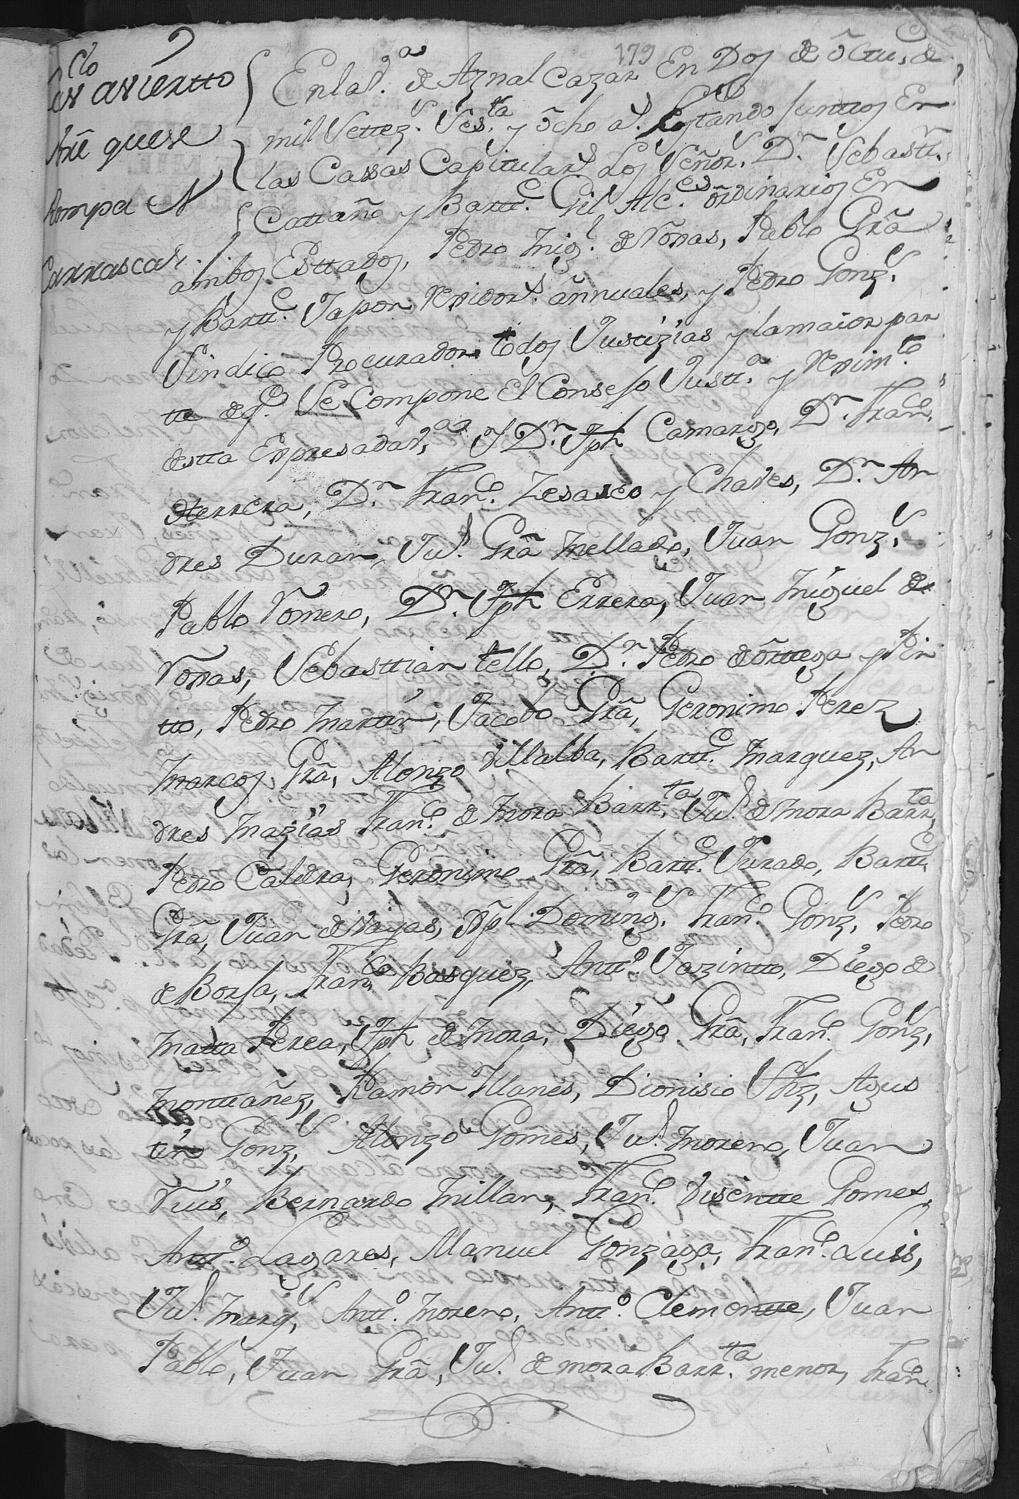 179
Cᵈᵒ
en avierto
prã que se
rompa el
Carrascal.
En la v.ª de Aznalcazar En Dos de ôctu.e de
mil Settez.s Ses.ta y ôcho a.s Estando Junttos En
las Cassas Capitular.s Los Señor.s D.n Sebastt.n
Cattaño y Bartt.e Gil Alc.es ôrdinarios En
ambos Esttados, Pedro Mig.l de Rôxas, Pablo Grã
y Bartt.e Japon Rexidor.s annuales, y Pedro Gonz.s
Sindico Procurador todos Justizias y la maior par
tte de q.e Se Compone El Consejo Justt.a y Rexim.to
de stta Expresada v.a, Y D.n Jph Camargo, D.n Fran.co
Herrera, D.n Fran.co Zesareo y Chaves, D.n An
dres Duran, Ju.n Grã Mellado, Juan Gonz.s
Pablo Romero, D.n Jph Errera, Juan Miguel de
Roxas, Sebasttian tello, D.n Pedro de ôrttega y Pin
tto, Pedro Martin, Jacobo Grã, Geronimo Perez
Marcos Grã, Alonzo Villalba, Bartt.e Marquez, An
dres Mazias Fran.co de Mora Barr.ta, Ju.n de Mora Barr.ta
Pedro Caldera, Geronimo Grã, Bartt.e Jurado, Bartt.e
Grã, Juan de Vargas, Xptl Doming.s Fran.co Gonz.s Pedro
de Borja, Fran.co Basquez, Antt.o Jazintto, Diego de
Matta Perea, Jph de Mora, Diego Grã, Fran.co Gonz.s
Monttañez, Ramon Illanes, Dionisio Shz, Agus
tin Gonz.s Alonzo Gomes, Ju.n Moreno, Juan
Ruis, Bernardo Millan, Fran.co Visentte Gomes,
Antt.o Lagares, Manuel Gonzaga, Fran.co Luis,
Ju.n Marq.s, Antt.o Moreno, Antt.o Clementte, Juan
Pablo, Juan Grã, Ju.n de mora Barr.ta menor, Fran.co